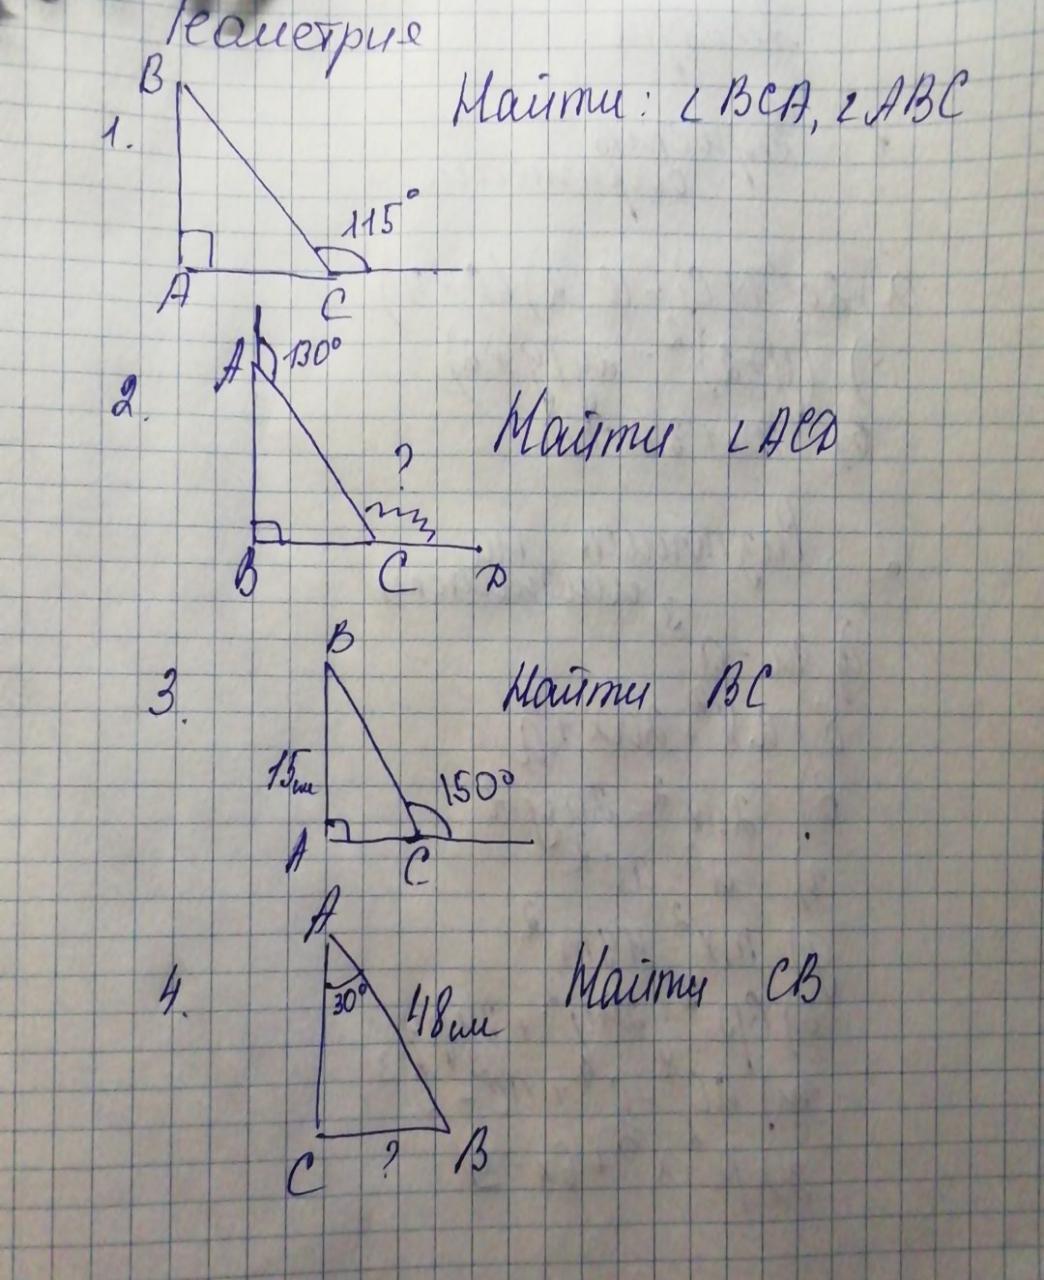 Геометрия
B
Найти: ∠BCA, ∠ABC
1.
115°
A
C
A
130°
2.
Найти ∠ACD
?
B
C
D
B
3.
Найти BC
15см
150°
A
C
A
4.
30°
48см
Найти CB
C
?
B